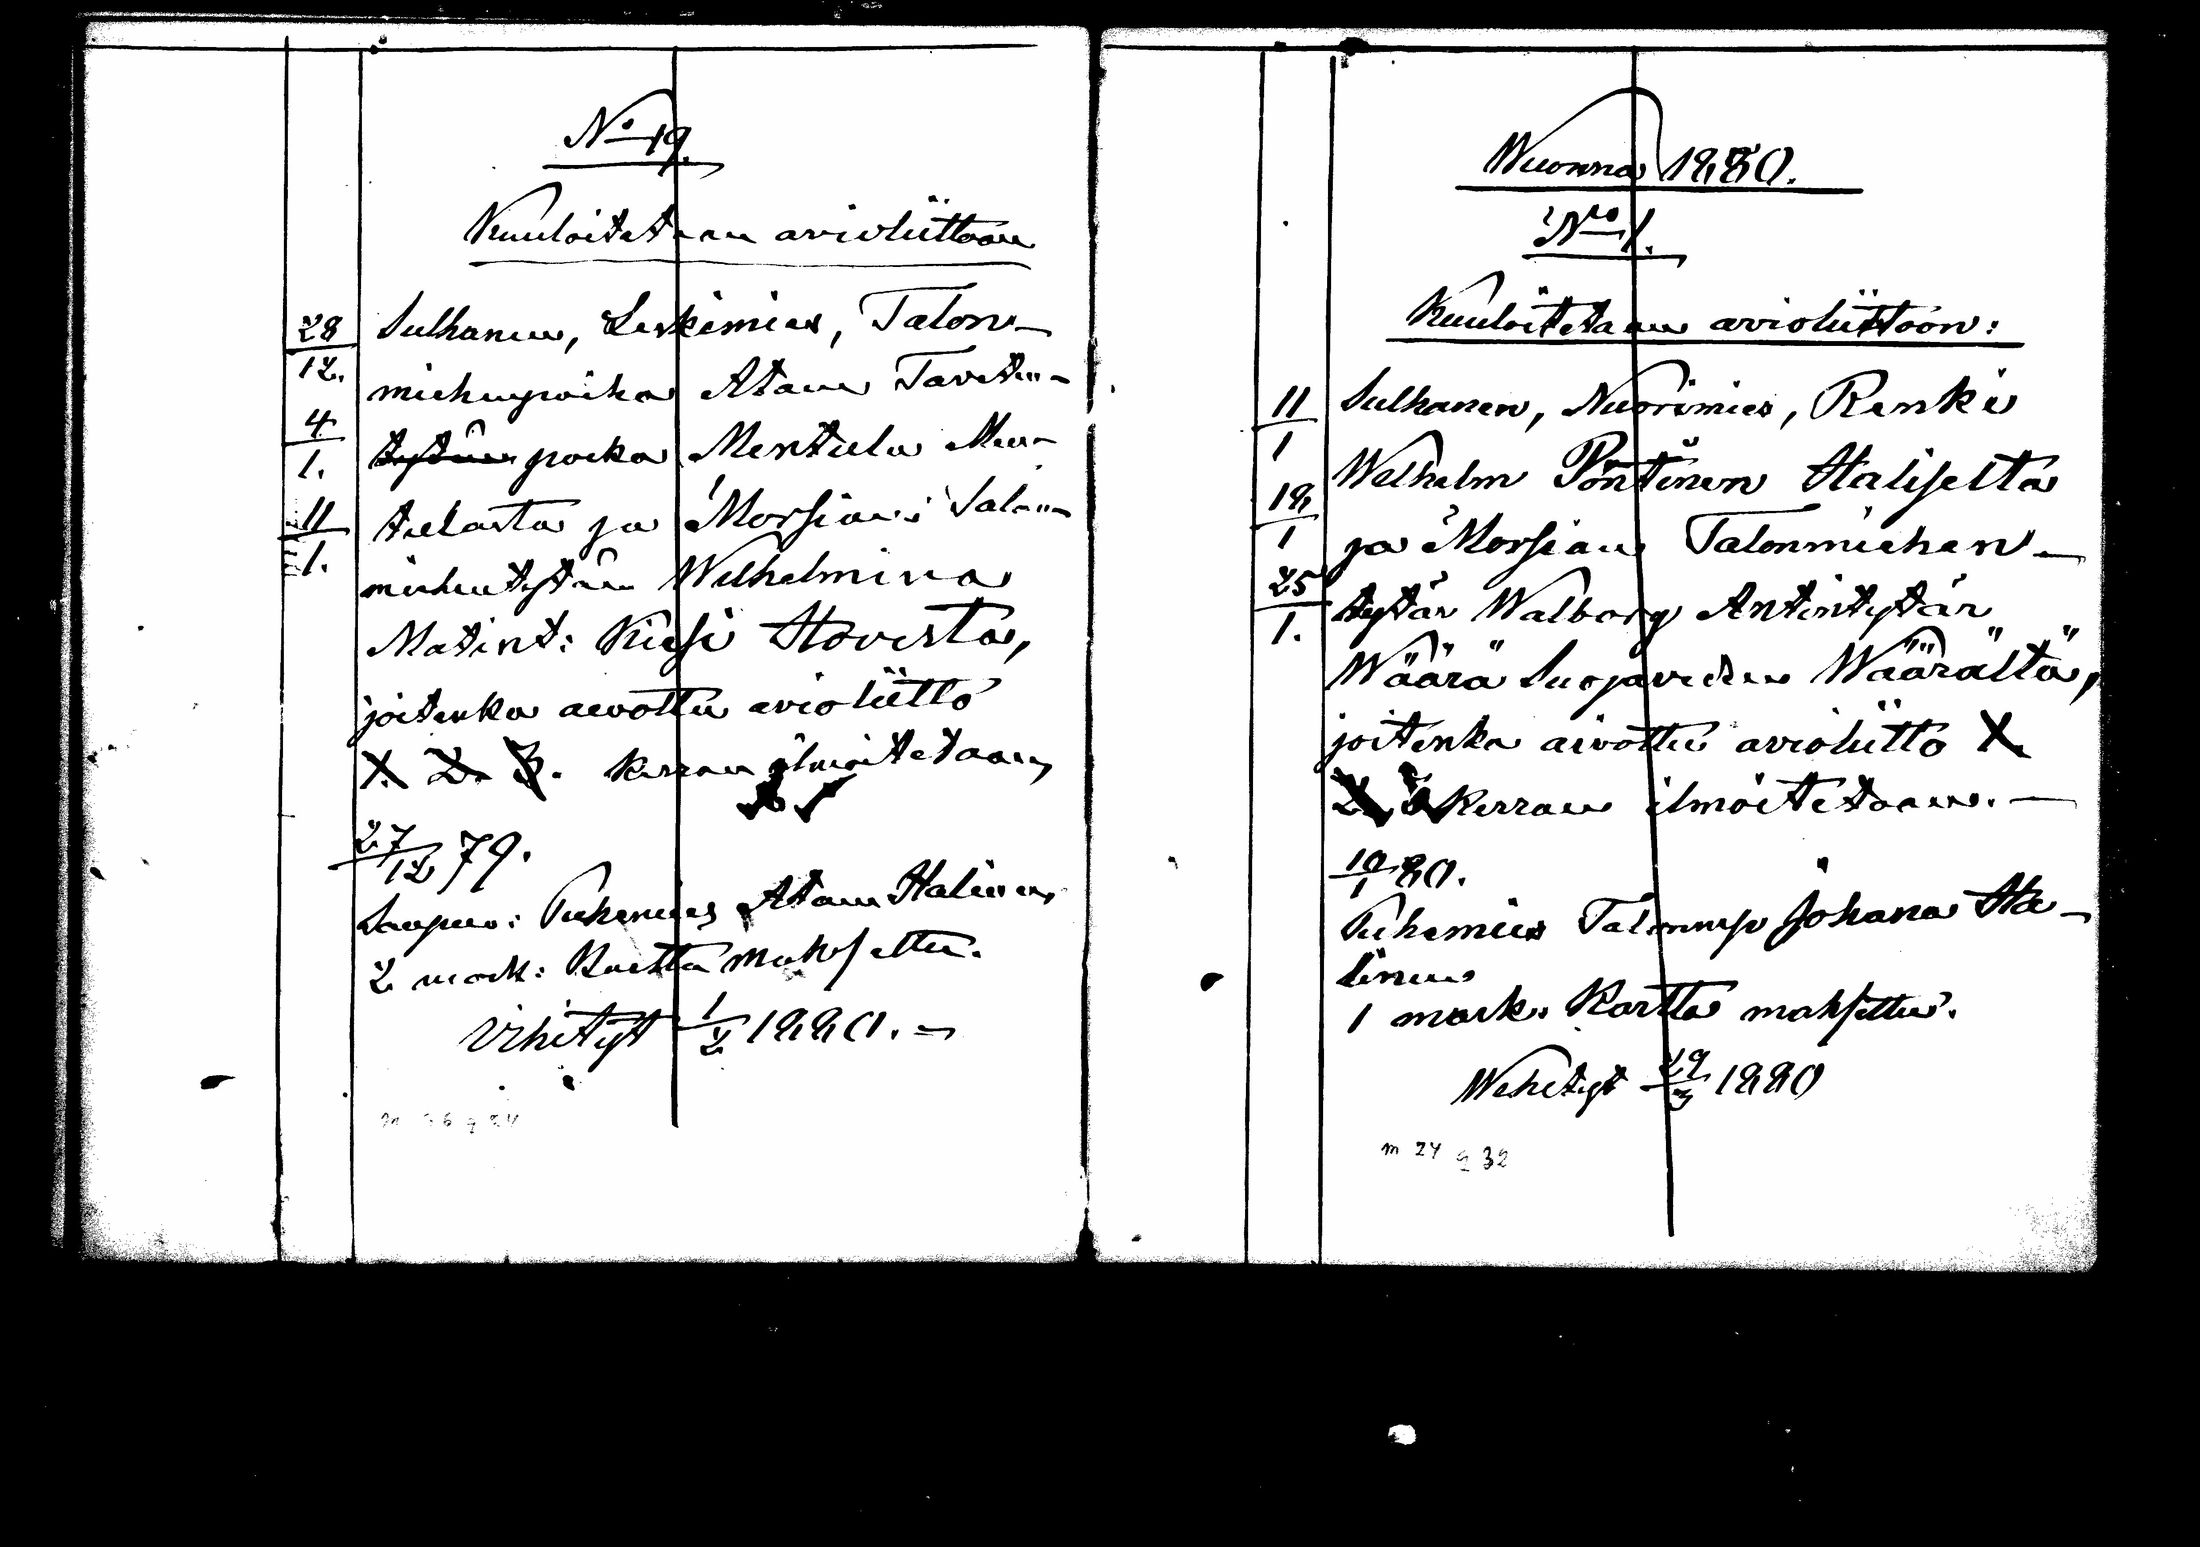 No 19.
Kuuloitetaan avioliittoon
28/12. Sulhanen, Leskimies, Talon-
miehenpoika Atam Taveten-
4/1. tytän poika Mentula Men-
11/1. tulasta ja Morsian: Talon-
miehentytän Wilhelmina
Matint: Kiesi Hovista,
joitenka aivottu avioliitto
1. 2. 3. kerran ilmoitetaan
27/12 79.
Puhemies Atam Halinen
2 mark: Kartta maksettu.
Vihityt 1/2 1880. –
Wuonna 1880.
No 1.
Kuuloitetaan avioliittoon:
11/1 Sulhanen, Nuorimies, Renki
Wilhelm Pöntinen Haliselta
18/1 ja Morsian Talonmiehen-
25/1. tytär Walborg Antintytär
Wäärä Suojärven Wäärältä,
joitenka aivottu avioliitto 1.
2. 3. kerran ilmoitetaan. –
10/1 80.
Puhemies Talonmp Johana Ha-
linen
1 mark. Kartta maksettu.
Wihityt 29/3 1880
m 24 q 32